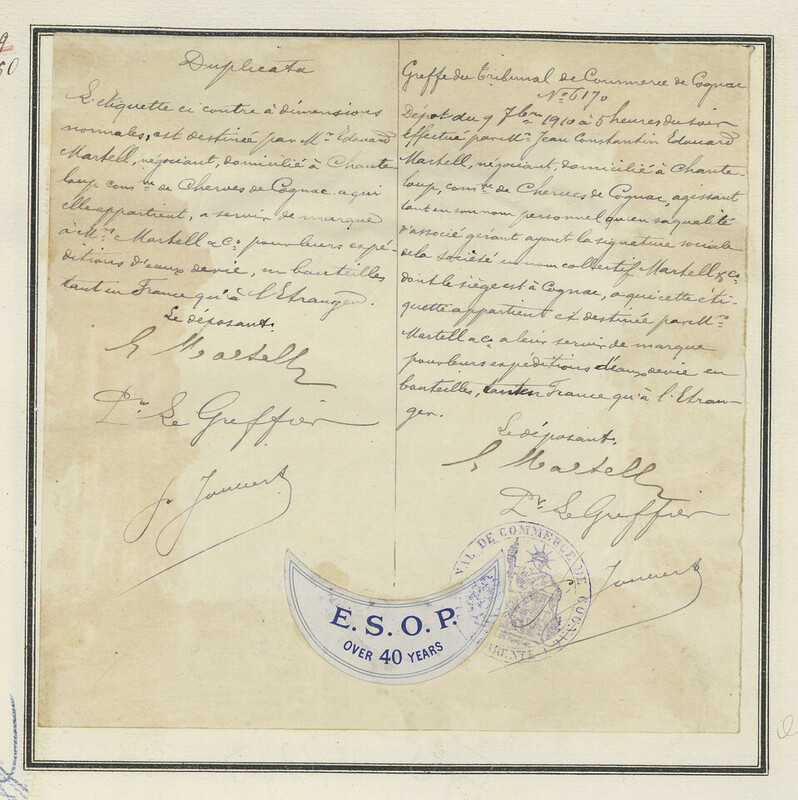 Duplicata
L'étiquette ci contre à dimensions
normales, est destinée par Mr Edouard
Martell, négociant, domicilié à Chante-
loup, comune de Cherves de Cognac, a qui
elle appartient, a servir de marque
à Mrs Martell & Co pour leurs expé-
ditions d'eaux de vie, en bouteilles
tant en France qu'à l'Etranger.
Le déposant.
E Martell
Pr Le Greffier
Greffe du Tribunal de Commerce de Cognac
No 6170
Dépot du 9 7bre 1910 à 5 heures du soir
Effectué par Mr Jean Constantin Edouard
Martell, négociant, domicilié à Chante-
loup, comne de Cherves de Cognac, agissant
tant en son nom personnel qu'en sa qualité
d'associé gérant ayant la signature sociale
de la société en nom collectif Martell & Co
dont le siège est à Cognac, a qui cette éti-
quette appartient et destinée par Mrs
Martell & Co a leur servir de marque
pour leurs expéditions d'eaux de vie en
bouteilles, tant en France qu'à l'Etran-
ger.
Le déposant.
E Martell
Pr Le Greffier
E. S. O. P.
OVER 40 YEARS
VAL DE COMMERCE DE COGNAC